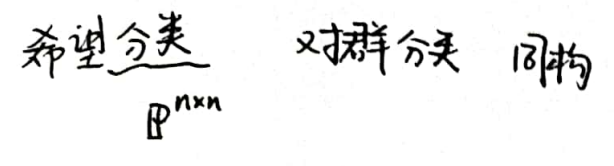 希望分类 对群分类 同构
P^{n×n}